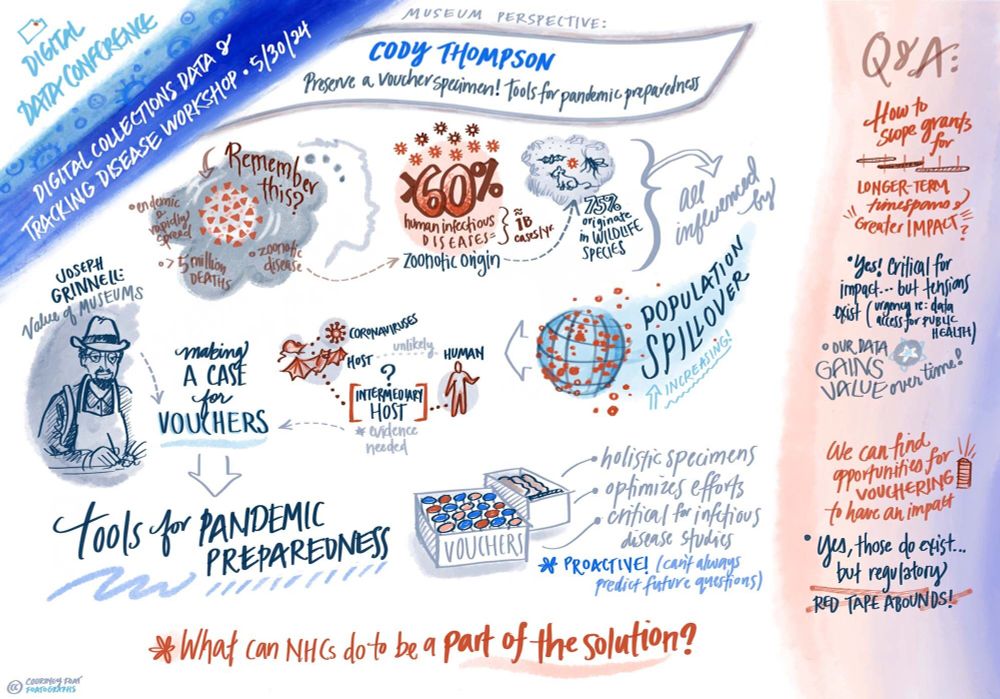 DIGITAL
DATA CONFERENCE
DIGITAL COLLECTIONS DATA &
TRACKING DISEASE WORKSHOP • 5/30/24
MUSEUM PERSPECTIVE:
CODY THOMPSON
Preserve a voucher specimen! Tools for pandemic preparedness
Remember
this?
• endemic
& rapidly
spread
• > 5 million
DEATHS
• zoonotic
disease
>60%
human infectious
DISEASES =
~
1B
cases/yr.
zoonotic origin
75%
originate
in WILDLIFE
SPECIES
all
influenced
by
POPULATION
SPILLOVER
INCREASING!
JOSEPH
GRINNELL:
Value of MUSEUMS
making
A CASE
for
VOUCHERS
CORONAVIRUSES
HOST
unlikely
HUMAN
?
[INTERMEDIARY
HOST]
* evidence
needed
Tools for PANDEMIC
PREPAREDNESS
VOUCHERS
• holistic specimens
• optimizes efforts
• critical for infectious
disease studies
* PROACTIVE! (can't always
predict future questions)
* What can NHCs do to be a part of the solution?
Q&A:
How to
scope grants
for
LONGER-TERM
timespans &
Greater IMPACT?
• Yes! Critical for
impact... but tensions
exist (urgency re: data
access for PUBLIC
HEALTH)
• OUR DATA
GAINS
VALUE over time!
We can find
opportunities for
VOUCHERING
to have an impact
• Yes, those do exist...
but regulatory
RED TAPE ABOUNDS!
cc COURTNEY FOAT
FOATOGRAPHS